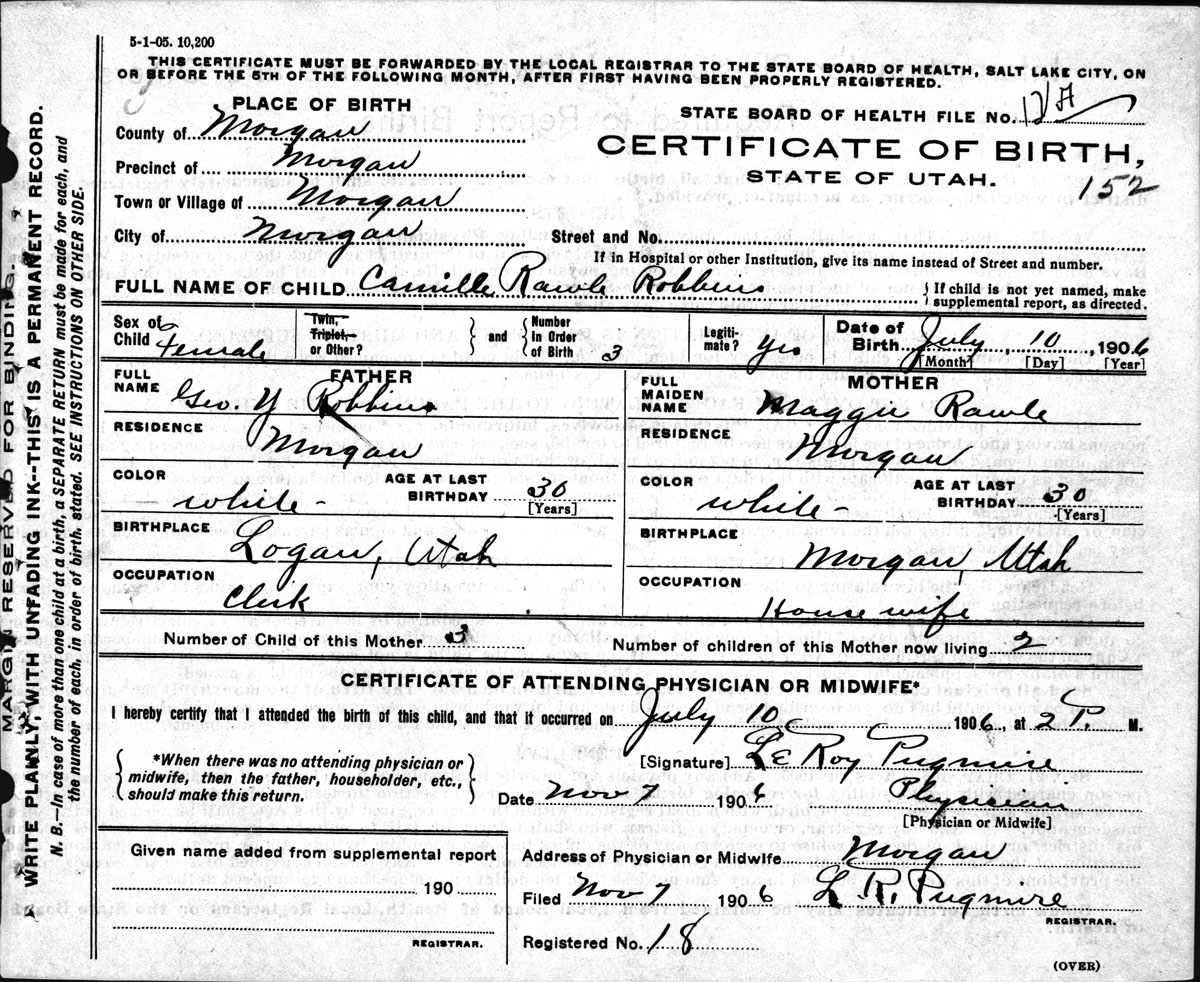 5-1-05. 10,200
THIS CERTIFICATE MUST BE FORWARDED BY THE LOCAL REGISTRAR TO THE STATE BOARD OF HEALTH, SALT LAKE CITY, ON
OR BEFORE THE 5TH OF THE FOLLOWING MONTH, AFTER FIRST HAVING BEEN PROPERLY REGISTERED.
MARGIN RESERVED FOR BINDING.
WRITE PLAINLY, WITH UNFADING INK--THIS IS A PERMANENT RECORD.
N. B.—In case of more than one child at a birth, a SEPARATE RETURN must be made for each, and
the number of each, in order of birth, stated. SEE INSTRUCTIONS ON OTHER SIDE.
PLACE OF BIRTH
County of Morgan
Precinct of Morgan
Town or Village of Morgan
City of Morgan
STATE BOARD OF HEALTH FILE No.
CERTIFICATE OF BIRTH,
STATE OF UTAH.
152
Street and No.
If in Hospital or other Institution, give its name instead of Street and number.
FULL NAME OF CHILD Camille Rawle Robbins { If child is not yet named, make
supplemental report, as directed.
Sex of Child Female
Twin, Triplet, or Other? } and { Number in Order of Birth 3
Legitimate? yes
Date of Birth July 10, 1906
[Month] [Day] [Year]
FATHER
FULL NAME Geo. Y Robbins
RESIDENCE Morgan
COLOR white - AGE AT LAST BIRTHDAY 30 [Years]
BIRTHPLACE Logan, Utah
OCCUPATION Clerk
MOTHER
FULL MAIDEN NAME Maggie Rawle
RESIDENCE Morgan
COLOR white - AGE AT LAST BIRTHDAY 30 [Years]
BIRTHPLACE Morgan Utah
OCCUPATION House wife
Number of Child of this Mother 3 Number of children of this Mother now living 2
CERTIFICATE OF ATTENDING PHYSICIAN OR MIDWIFE*
I hereby certify that I attended the birth of this child, and that it occurred on July 10 1906, at 2 P. M.
{ *When there was no attending physician or
midwife, then the father, householder, etc.,
should make this return. }
[Signature] Le Roy Pugmire
Date Nov 7 1906 Physician
[Physician or Midwife]
Given name added from supplemental report
190
REGISTRAR.
Address of Physician or Midwife Morgan
Filed Nov 7 1906 L R. Pugmire
REGISTRAR.
Registered No. 18
(OVER)